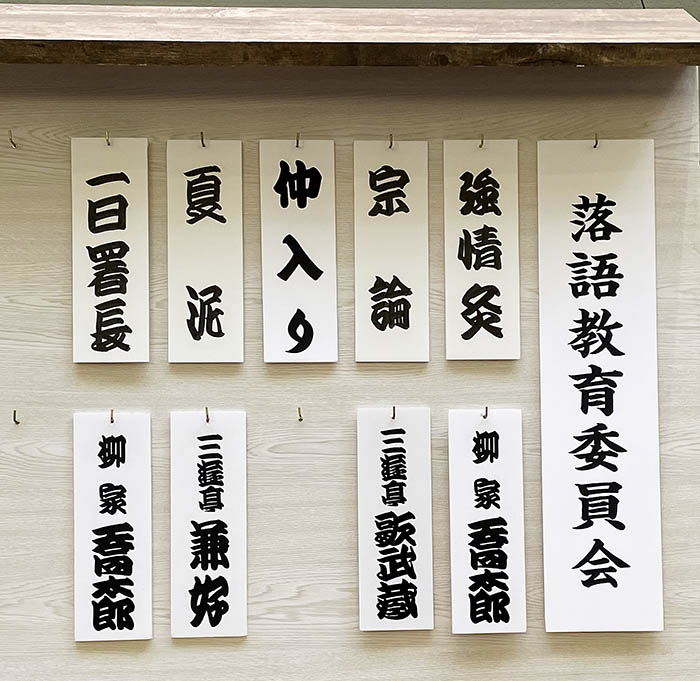 落語教育委員会
強情灸
柳家喬太郎
宗論
三遊亭歌武蔵
仲入り
夏泥
三遊亭兼好
一日署長
柳家喬太郎